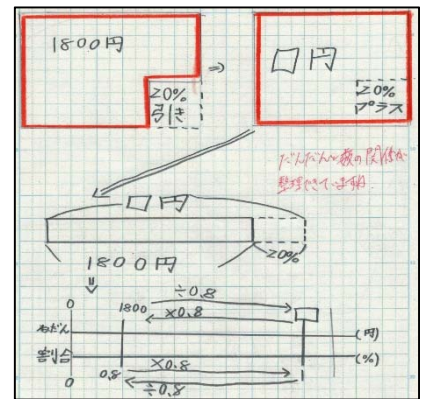 1800円
20%
引き
⇒
□円
20%
プラス
だんだんと数の関係が
整理できていますね
□円
1800円
20%
⇓
÷0.8
0
1800
×0.8
□
ねだん
(円)
割合
(%)
×0.8
0
0.8
1
÷0.8